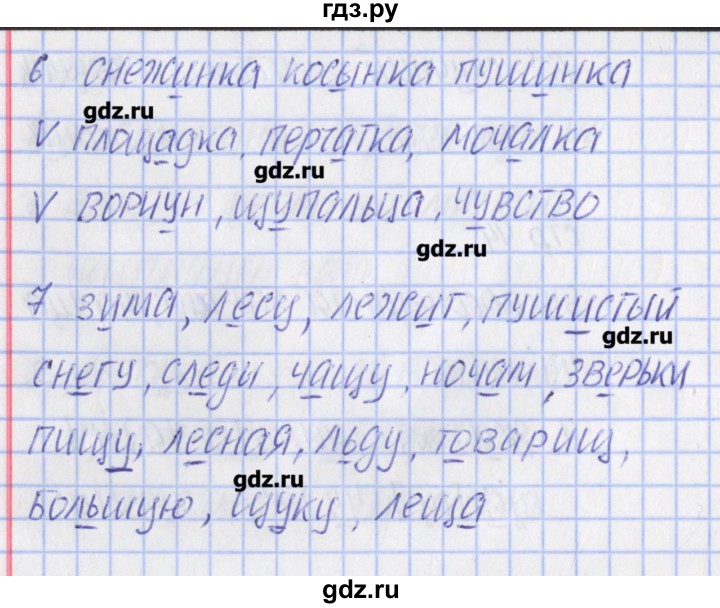 гдз.ру
6 снежинка косынка пушинка
gdz.ru
V площадка, перчатка, мочалка
gdz.ru
V ворчун, щупальца, чувство
gdz.ru
7 зима, лесу, лежит, пушистый
gdz.ru
снегу, следы, чащу, ночам, зверьки
пищу, лесная, льду, товарищ,
gdz.ru
большую, щуку, леща
gdz.ru